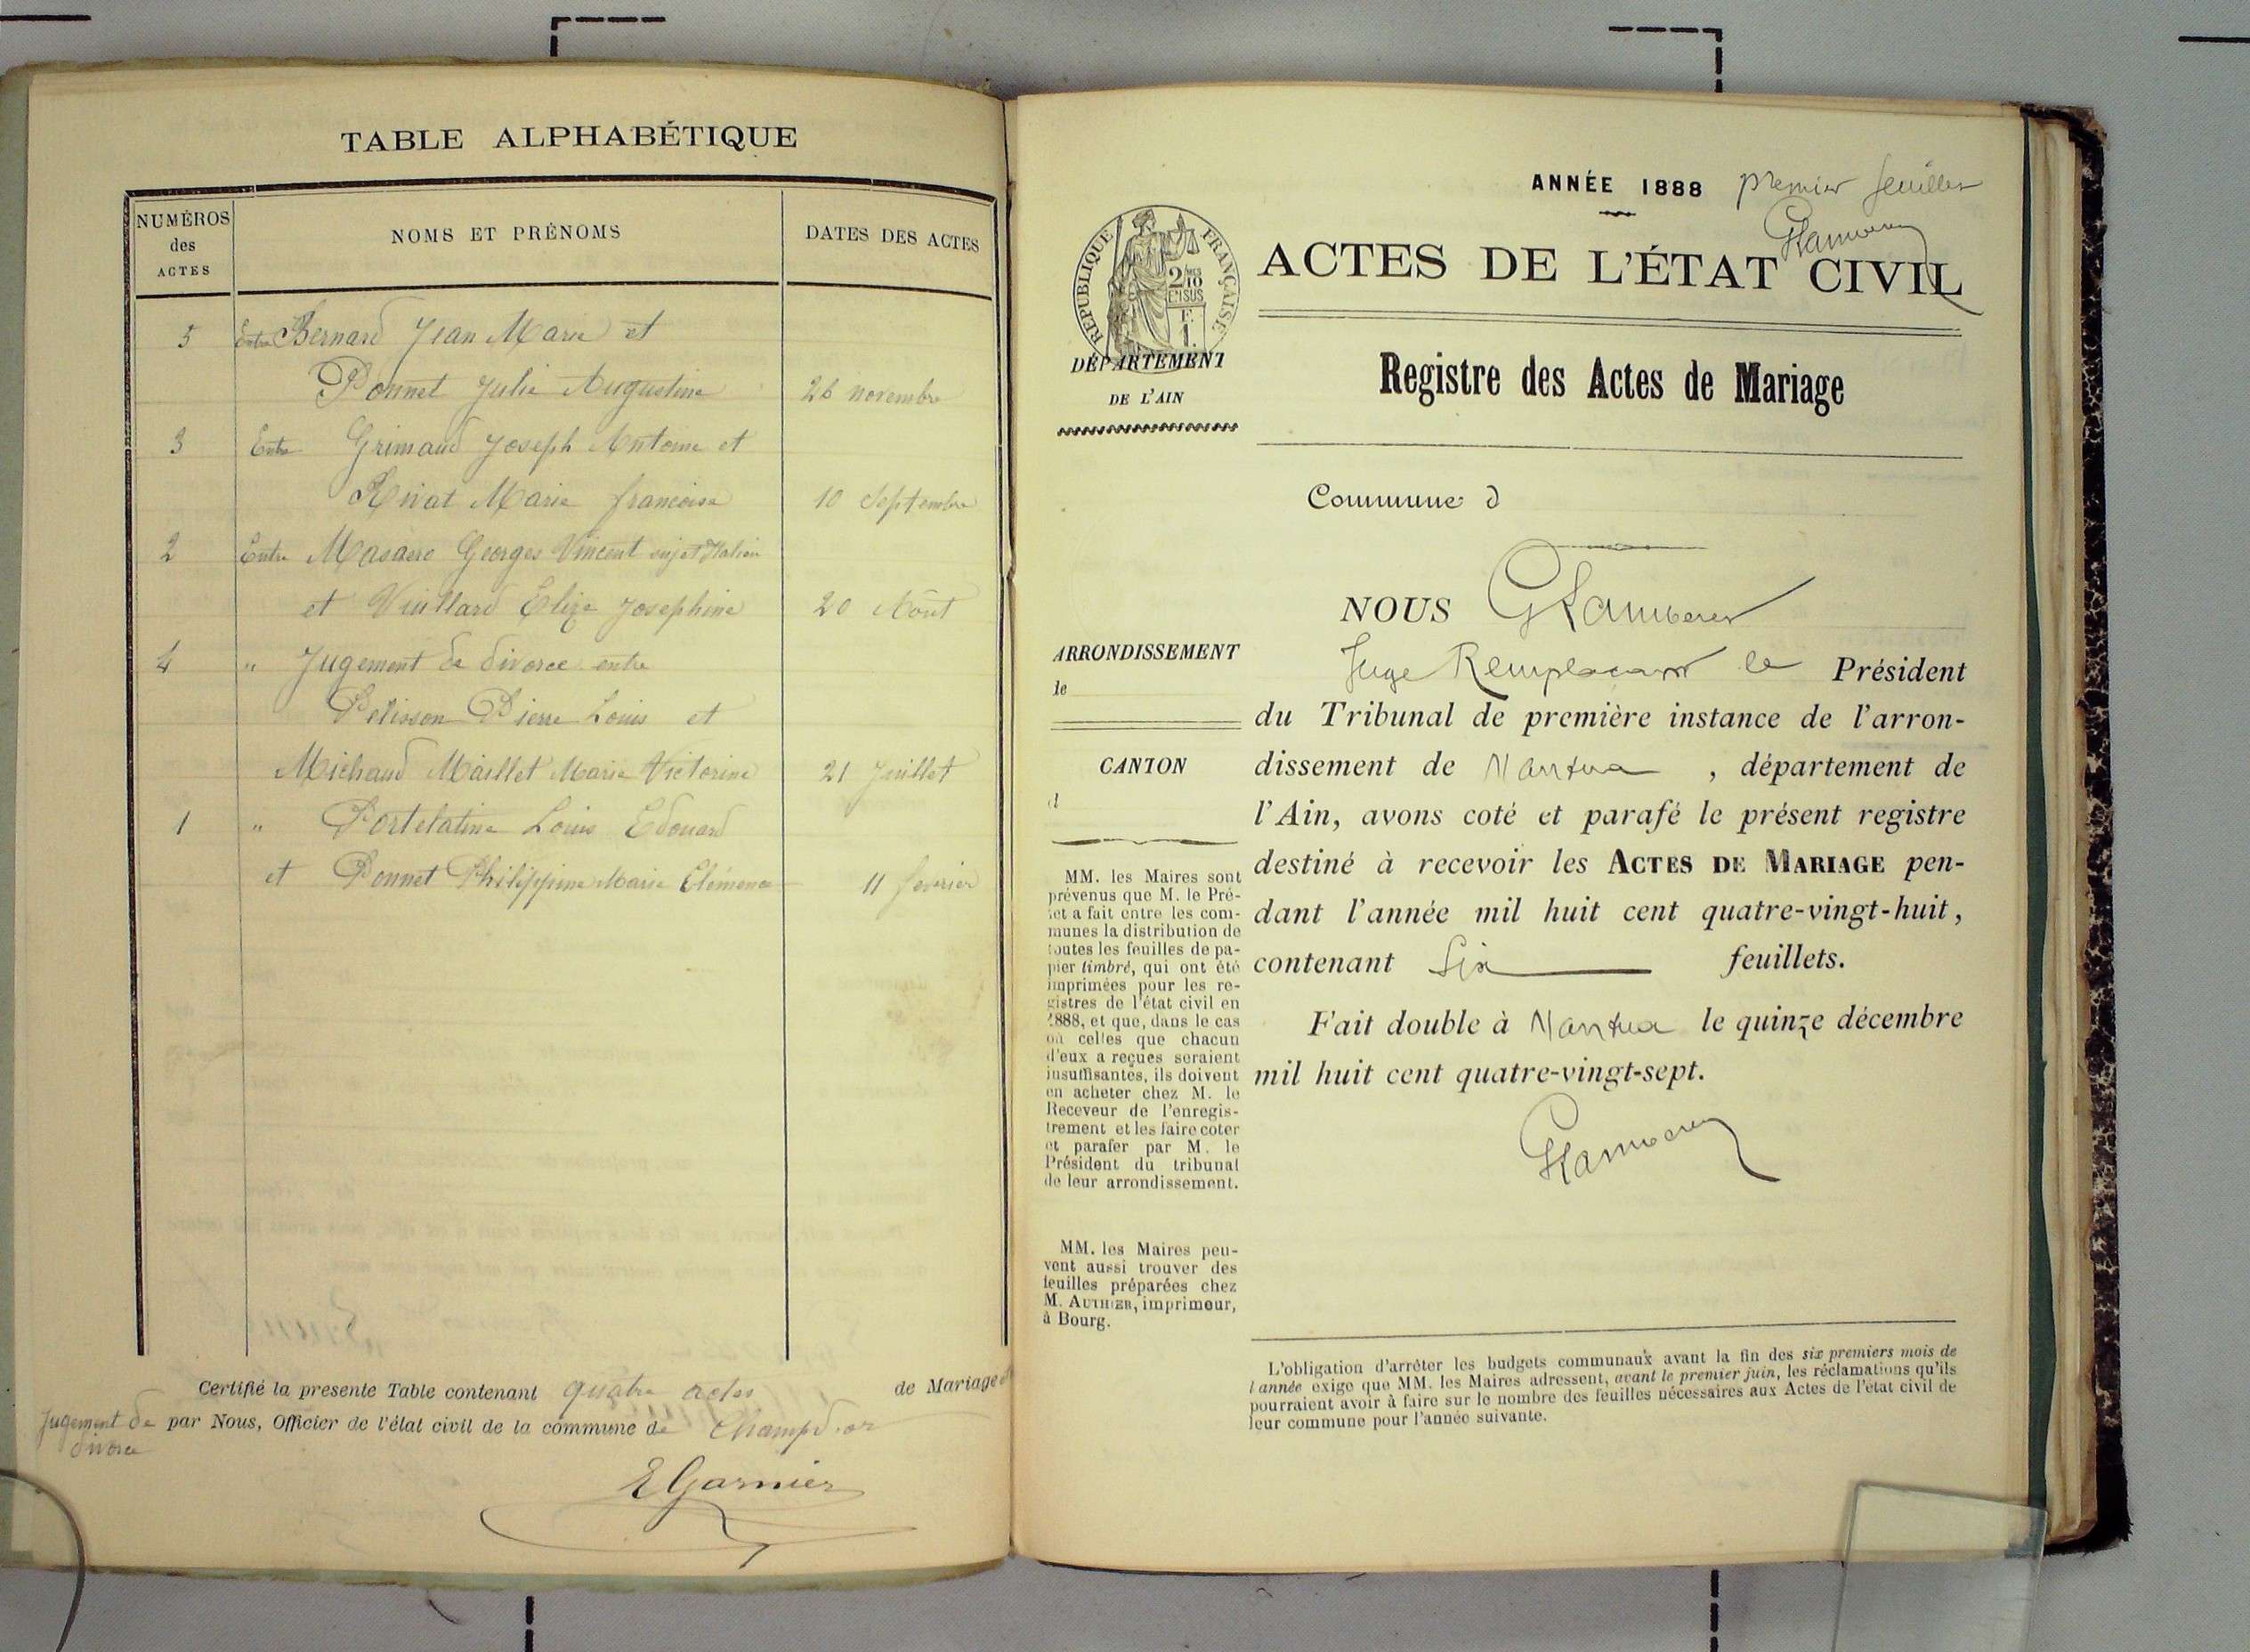 TABLE ALPHABÉTIQUE
NUMÉROS
des
ACTES
NOMS ET PRÉNOMS
DATES DES ACTES
5 Entre Bernard Jean Marie et
Ponnet Julie Augustine 26 novembre
3 Entre Grimaud Joseph Antoine et
Rivat Marie francoise 10 Septembre
2 Entre Masaero Georges Vincent sujet Italien
et Vuillard Elize Josephine 20 Aôut
4 " Jugement de divorce entre
Pelisson Pierre Louis et
Michaud Maillet Marie Victorine 21 Juillet
1 " Portelatine Louis Edouard
et Ponnet Philippine Marie Clémence 11 fevrier
Certifié la presente Table contenant quatre actes de Mariage
Jugement de
divorce
par Nous, Officier de l'état civil de la commune de Champd'or
EGarnier
ANNÉE 1888 premier feuillet
RÉPUBLIQUE FRANÇAISE
2/10
EN SUS
F.
1.
ACTES DE L'ÉTAT CIVIL
DÉPARTEMENT
DE L'AIN
Registre des Actes de Mariage
Commune d
NOUS
Juge Remplacant le Président
du Tribunal de première instance de l'arron-
dissement de Nantua , département de
l'Ain, avons coté et parafé le présent registre
destiné à recevoir les ACTES DE MARIAGE pen-
dant l'année mil huit cent quatre-vingt-huit,
contenant Six feuillets.
Fait double à Nantua le quinze décembre
mil huit cent quatre-vingt-sept.
ARRONDISSEMENT
de
CANTON
d
MM. les Maires sont
prévenus que M. le Pré-
fet a fait entre les com-
munes la distribution de
toutes les feuilles de pa-
pier timbré, qui ont été
imprimées pour les re-
gistres de l'état civil en
1888, et que, dans le cas
où celles que chacun
d'eux a reçues seraient
insuffisantes, ils doivent
en acheter chez M. le
Receveur de l'enregis-
trement et les faire coter
et parafer par M. le
Président du tribunal
de leur arrondissement.
MM. les Maires peu-
vent aussi trouver des
feuilles préparées chez
M. AUTHIER, imprimeur,
à Bourg.
L'obligation d'arrêter les budgets communaux avant la fin des six premiers mois de
l'année exige que MM. les Maires adressent, avant le premier juin, les réclamations qu'ils
pourraient avoir à faire sur le nombre des feuilles nécessaires aux Actes de l'état civil de
leur commune pour l'année suivante.